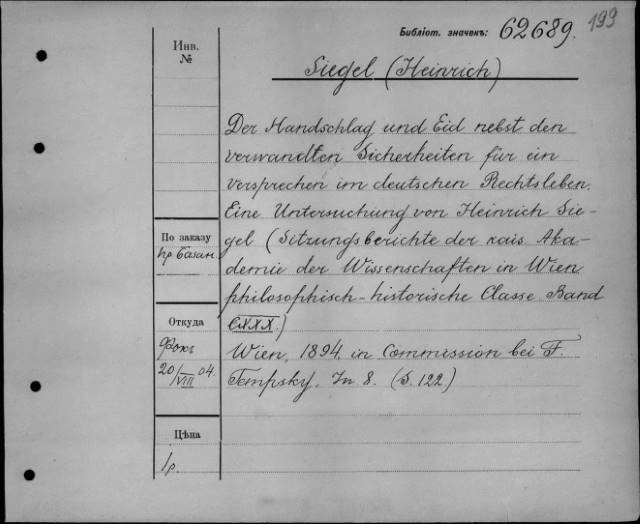 Библіот. значекъ: 62689.
199
Инв.
№
Siegel (Heinrich)
Der Handschlag und Eid nebst den
verwandten Sicherheiten für ein
versprechen im deutschen Rechtsleben.
Eine Untersuchung von Heinrich Sie-
gel (Sitzungsberichte der kais. Aka-
demie der Wissenschaften in Wien
philosophisch-historische Classe Band
CXXX.)
Wien, 1894. in Commission bei F.
Tempsky. In 8. (S. 122)
По заказу
пр Базан.
Откуда
Фокъ
20/VIII 04.
Цѣна
1р.